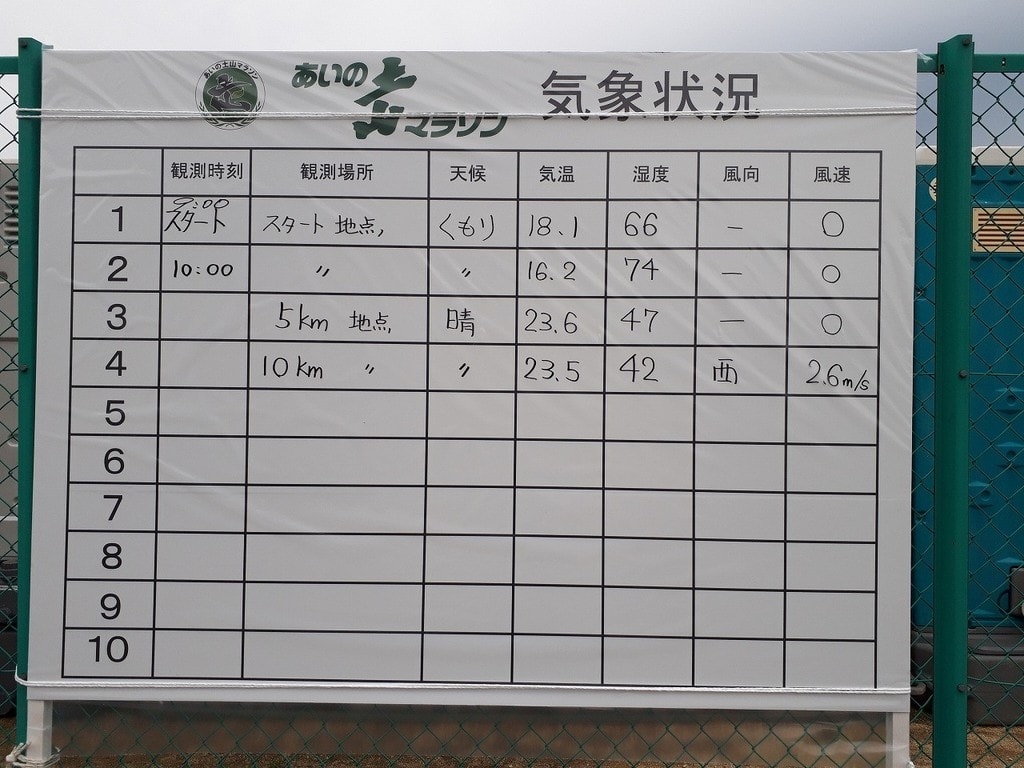 あいの土山マラソン
あいの土山マラソン 気象状況
観測時刻 観測場所 天候 気温 湿度 風向 風速
1 9:00 スタート スタート 地点, くもり 18.1 66 — ○
2 10:00 〃 〃 16.2 74 — ○
3 5km 地点, 晴 23.6 47 — ○
4 10km 〃 〃 23.5 42 西 2.6m/s
5
6
7
8
9
10